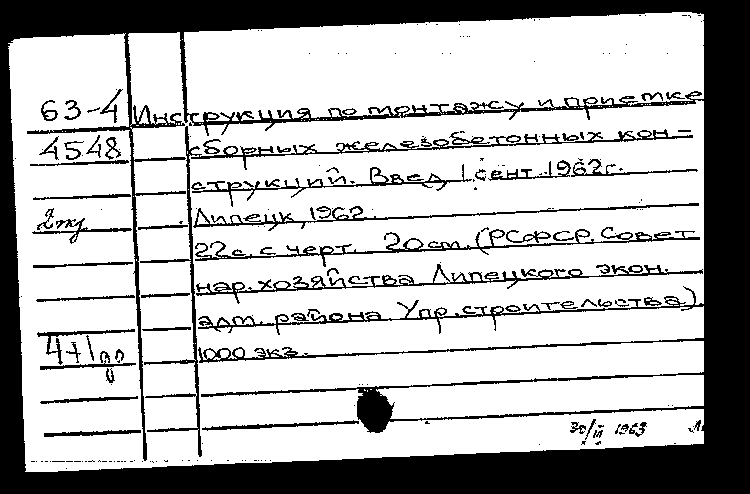 63-4 Инструкция по монтажу и приемке
4548 сборных железобетонных кон-
струкций. Введ 1 сент 1962г.
2 экз Липецк, 1962.
22с. с черт. 20см. (РСФСР. Совет
нар. хозяйства Липецкого экон.
адм. района Упр. строительства).
4+1 1000 экз.
30/II 1963